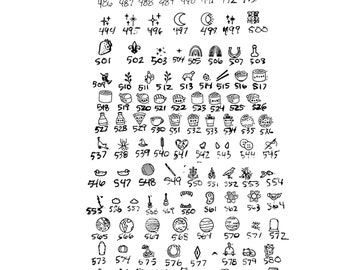 494 495 496 497 498 499 500
501 502 503 504 505 506 507 508
509 510 511 512 513 514 515 516 517
518 519 520 521 522 523 524 525 526
527 528 529 530 531 532 533 534 535 536
537 538 539 540 541 542 543 544 545
546 547 548 549 550 551 552 553 554
555 556 557 558 559 560 561 562 563 564
565 566 567 568 569 570 571 572
573 574 575 576 577 578 579 580